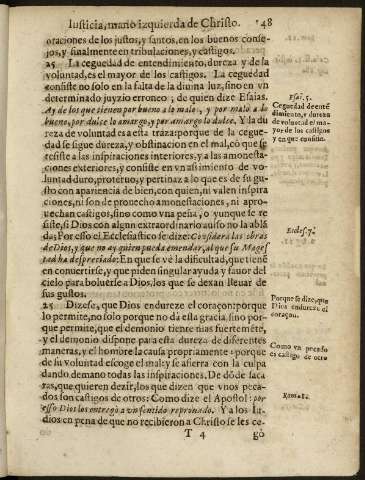 Iusticia, mano izquierda de Christo. 48
oraciones de los justos, y santos, en los buenos conse-
jos, y finalmente en tribulaciones, y castigos.
25 La ceguedad de entendimiento, dureza y de la
voluntad, es el mayor de los castigos. La ceguedad
consiste no solo en la falta de la diuina luz, sino en vn
determinado juyzio erroneo; de quien dize Esaias.
Ay de los que tienen por bueno a lo malo, y por malo a lo
bueno, por dulce lo amargo, y por amargo lo dulce. Y la du
reza de voluntad es a esta traza: porque de la cegue-
dad se sigue dureza, y obstinacion en el mal, cõ que se
resiste a las inspiraciones interiores, y a las amonesta-
ciones exteriores, y consiste en vn asimiento de volun-
tad duro, proteruo, y pertinaz a lo que es de su gus-
to con apariencia de bien, con quien, ni valen inspira
ciones, ni son de prouecho amonestaciones, ni apro-
uechan castigos, sino como vna peña, o yunque se re
siste, si Dios con algun extraordinario auiso no la ablã
da; Por esso el Ecclesiastico se dize: Considera las obras
de Dios, y que no ay quien pueda emendar, al que su Mages
tad ha despreciado: En que se vè la dificultad, que tienẽ
en conuertirse, y que piden singular ayuda y fauor del
cielo para boluerse a Dios, los que se dexan lleuar de
sus gustos.
25 Dizese, que Dios endureze el coraçon: porque
lo permite, no solo porque no dà esta gracia, sino por-
que permite, que el demonio tiente mas fuertemẽte,
y el demonio dispone para esta dureza de diferentes
maneras, y el hombre la causa propriamente: porque
de su voluntad escoge el mal; y se afierra con la culpa
dando de mano todas las inspiraciones. De dõde saca
ras, que quieren dezir, los que dizen que vnos peca-
dos son castigos de otros: Como dize el Apostol: por
esso Dios los entregò a vn sentido reprouado. Y a los Iu-
dios en pena de que no recibieron a Christo se les ce-
T 4 gò
Esai. 5.
Ceguedad de entẽ
dimiento, y dureza
de volũtad el ma-
yor de los castigos
y en que consiste.
Eccles. 7.
Porque se dize, que
Dios endureze el
coraçon.
Como vn pecado
es castigo de otro
Rom. 1.